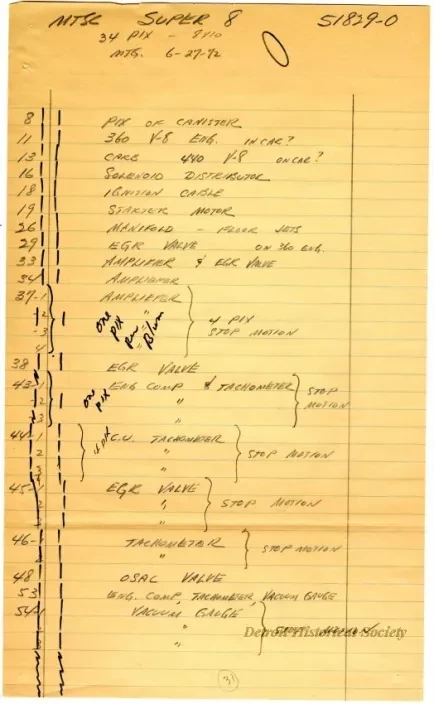 MTSC SUPER 8 51829-0
34 PIX - 8X10
MTG. 6-27-72
8 PIX OF CANISTER
11 360 V-8 ENG. IN CAR?
13 CARB 440 V-8 ON CAR?
16 SOLENOID DISTRIBUTOR
18 IGNITION CABLE
19 STARTER MOTOR
26 MANIFOLD - FLOOR JETS
29 EGR VALVE ON 360 ENG.
33 AMPLIFIER & EGR VALVE
34 AMPLIFIER
37-1 AMPLIFIER
-2 one pix " 4 PIX
-3 " STOP MOTION
4 "
38 EGR VALVE
43-1 ENG COMP & TACHOMETER STOP
-2 one pix " MOTION
3 "
44-1 4 pix C.U. TACHOMETER
2 " STOP MOTION
3 "
4
45-1 EGR VALVE
2 " STOP MOTION
"
46-1 TACHOMETER STOP MOTION
"
48 OSAC VALVE
53 ENG. COMP, TACHOMETER, VACUUM GAUGE
54-1 VACUUM GAUGE
" STOP MOTION
"
Detroit Historical Society
31